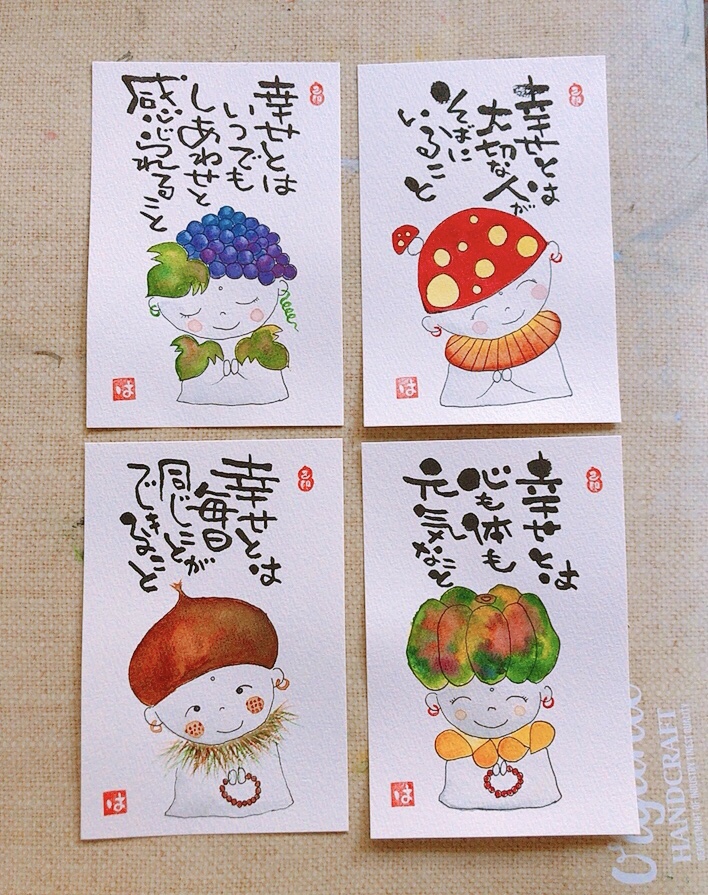 幸せとは
いつでも
しあわせと
感じられること
は
幸せとは
大切な人が
そばに
いること
は
幸せとは
毎日
同じことが
できること
は
幸せとは
心も体も
元気なこと
は
Organic
HANDCRAFT